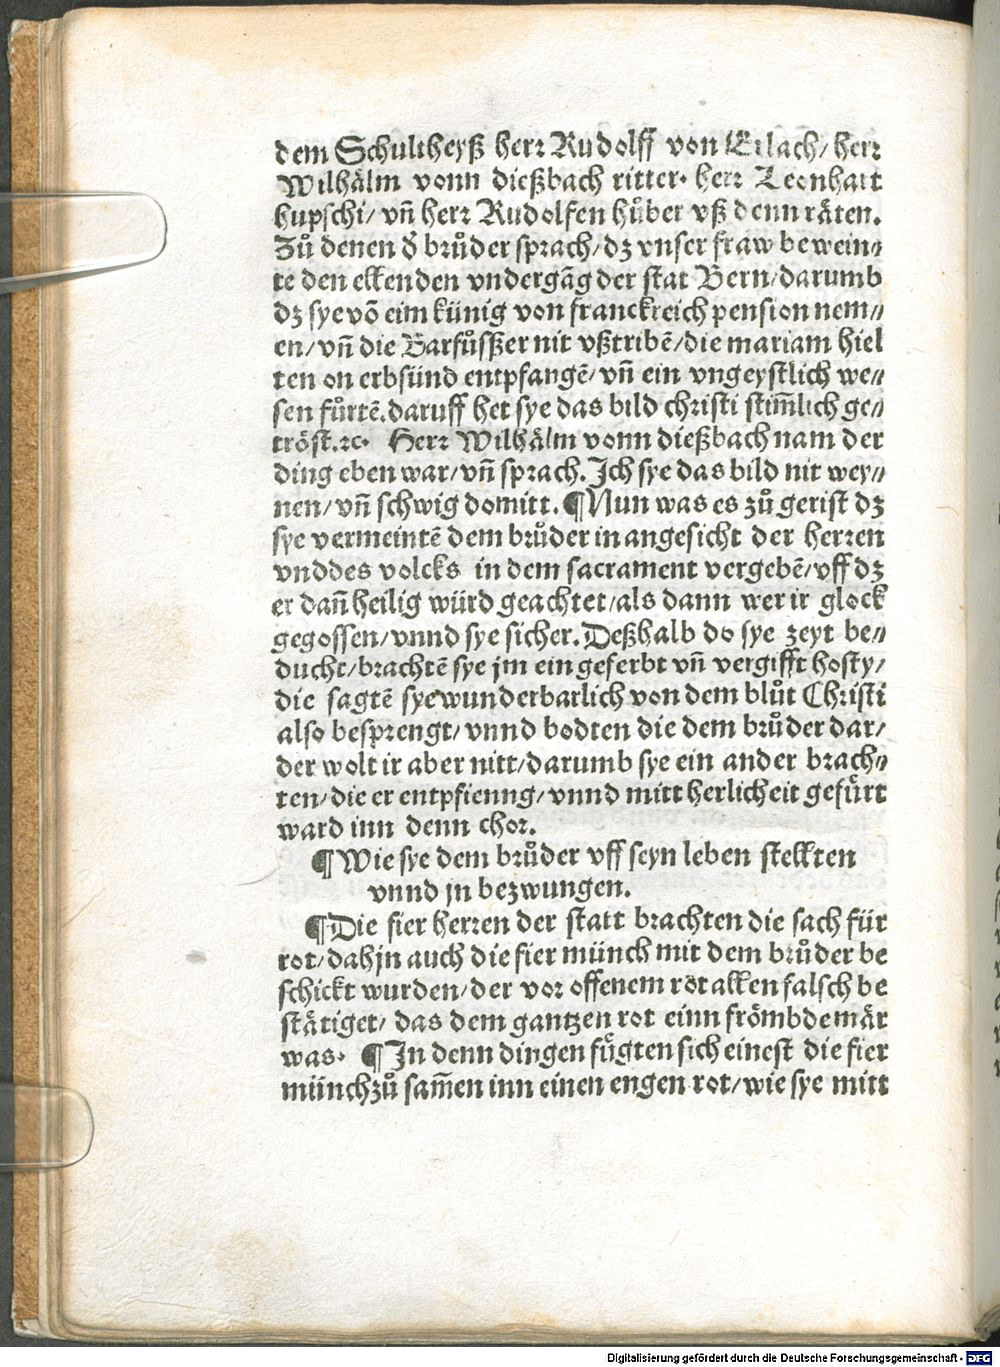 dem Schultheyß herr Rudolff von Erlach/ herr
Wilhälm vonn dießbach ritter. herr Leonhart
hupschi/ vñ herr Rudolfen hůber vß denn räten.
Zů denen d̓ brůder sprach/ dz vnser fraw bewein⸗
te den ellenden vndergãg der stat Bern/ darumb
dz sye võ eim künig von franckreich pension nem⸗
en/ vñ die Barfůsßer nit vßtribẽ/ die mariam hiel
ten on erbsünd entpfangẽ/ vñ ein vngeystlich we⸗
sen fůrtẽ. daruff het sye das bild christi stim̃lich ge⸗
tröst.ꝛc. Herr Wilhälm vonn dießbach nam der
ding eben war/ vñ sprach. Ich sye das bild nit wey⸗
nen/ vñ schwig domitt. ¶ Nun was es zů gerist dz
sye vermeintẽ dem brůder in angesicht der herren
vnd des volcks in dem sacrament vergebẽ/ vff dz
er dañ heilig würd geachtet/ als dann wer ir glock
gegossen/ vnnd sye sicher. Deßhalb do sye zeyt be⸗
ducht/ brachtẽ sye jm ein geferbt vñ vergifft hosty/
die sagtẽ sye wunderbarlich von dem blůt Christi
also besprengt/ vnnd bodten die dem brůder dar/
der wolt ir aber nitt/ darumb sye ein ander brach⸗
ten/ die er entpfienng/ vnnd mitt herlicheit gefürt
ward inn denn chor.
¶ Wie sye dem brůder vff seyn leben stellten
vnnd jn bezwungen.
¶ Die fier herren der statt brachten die sach für
rot/ dahjn auch die fier münch mit dem brůder be
schickt wurden/ der vor offenem rot allen falsch be
stätiget/ das dem gantzen rot einn frömbde mär
was. ¶ In denn dingen fügten sich einest die fier
münch zů sam̃en inn einen engen rot/ wie sye mitt
Digitalisierung gefördert durch die Deutsche Forschungsgemeinschaft - DFG